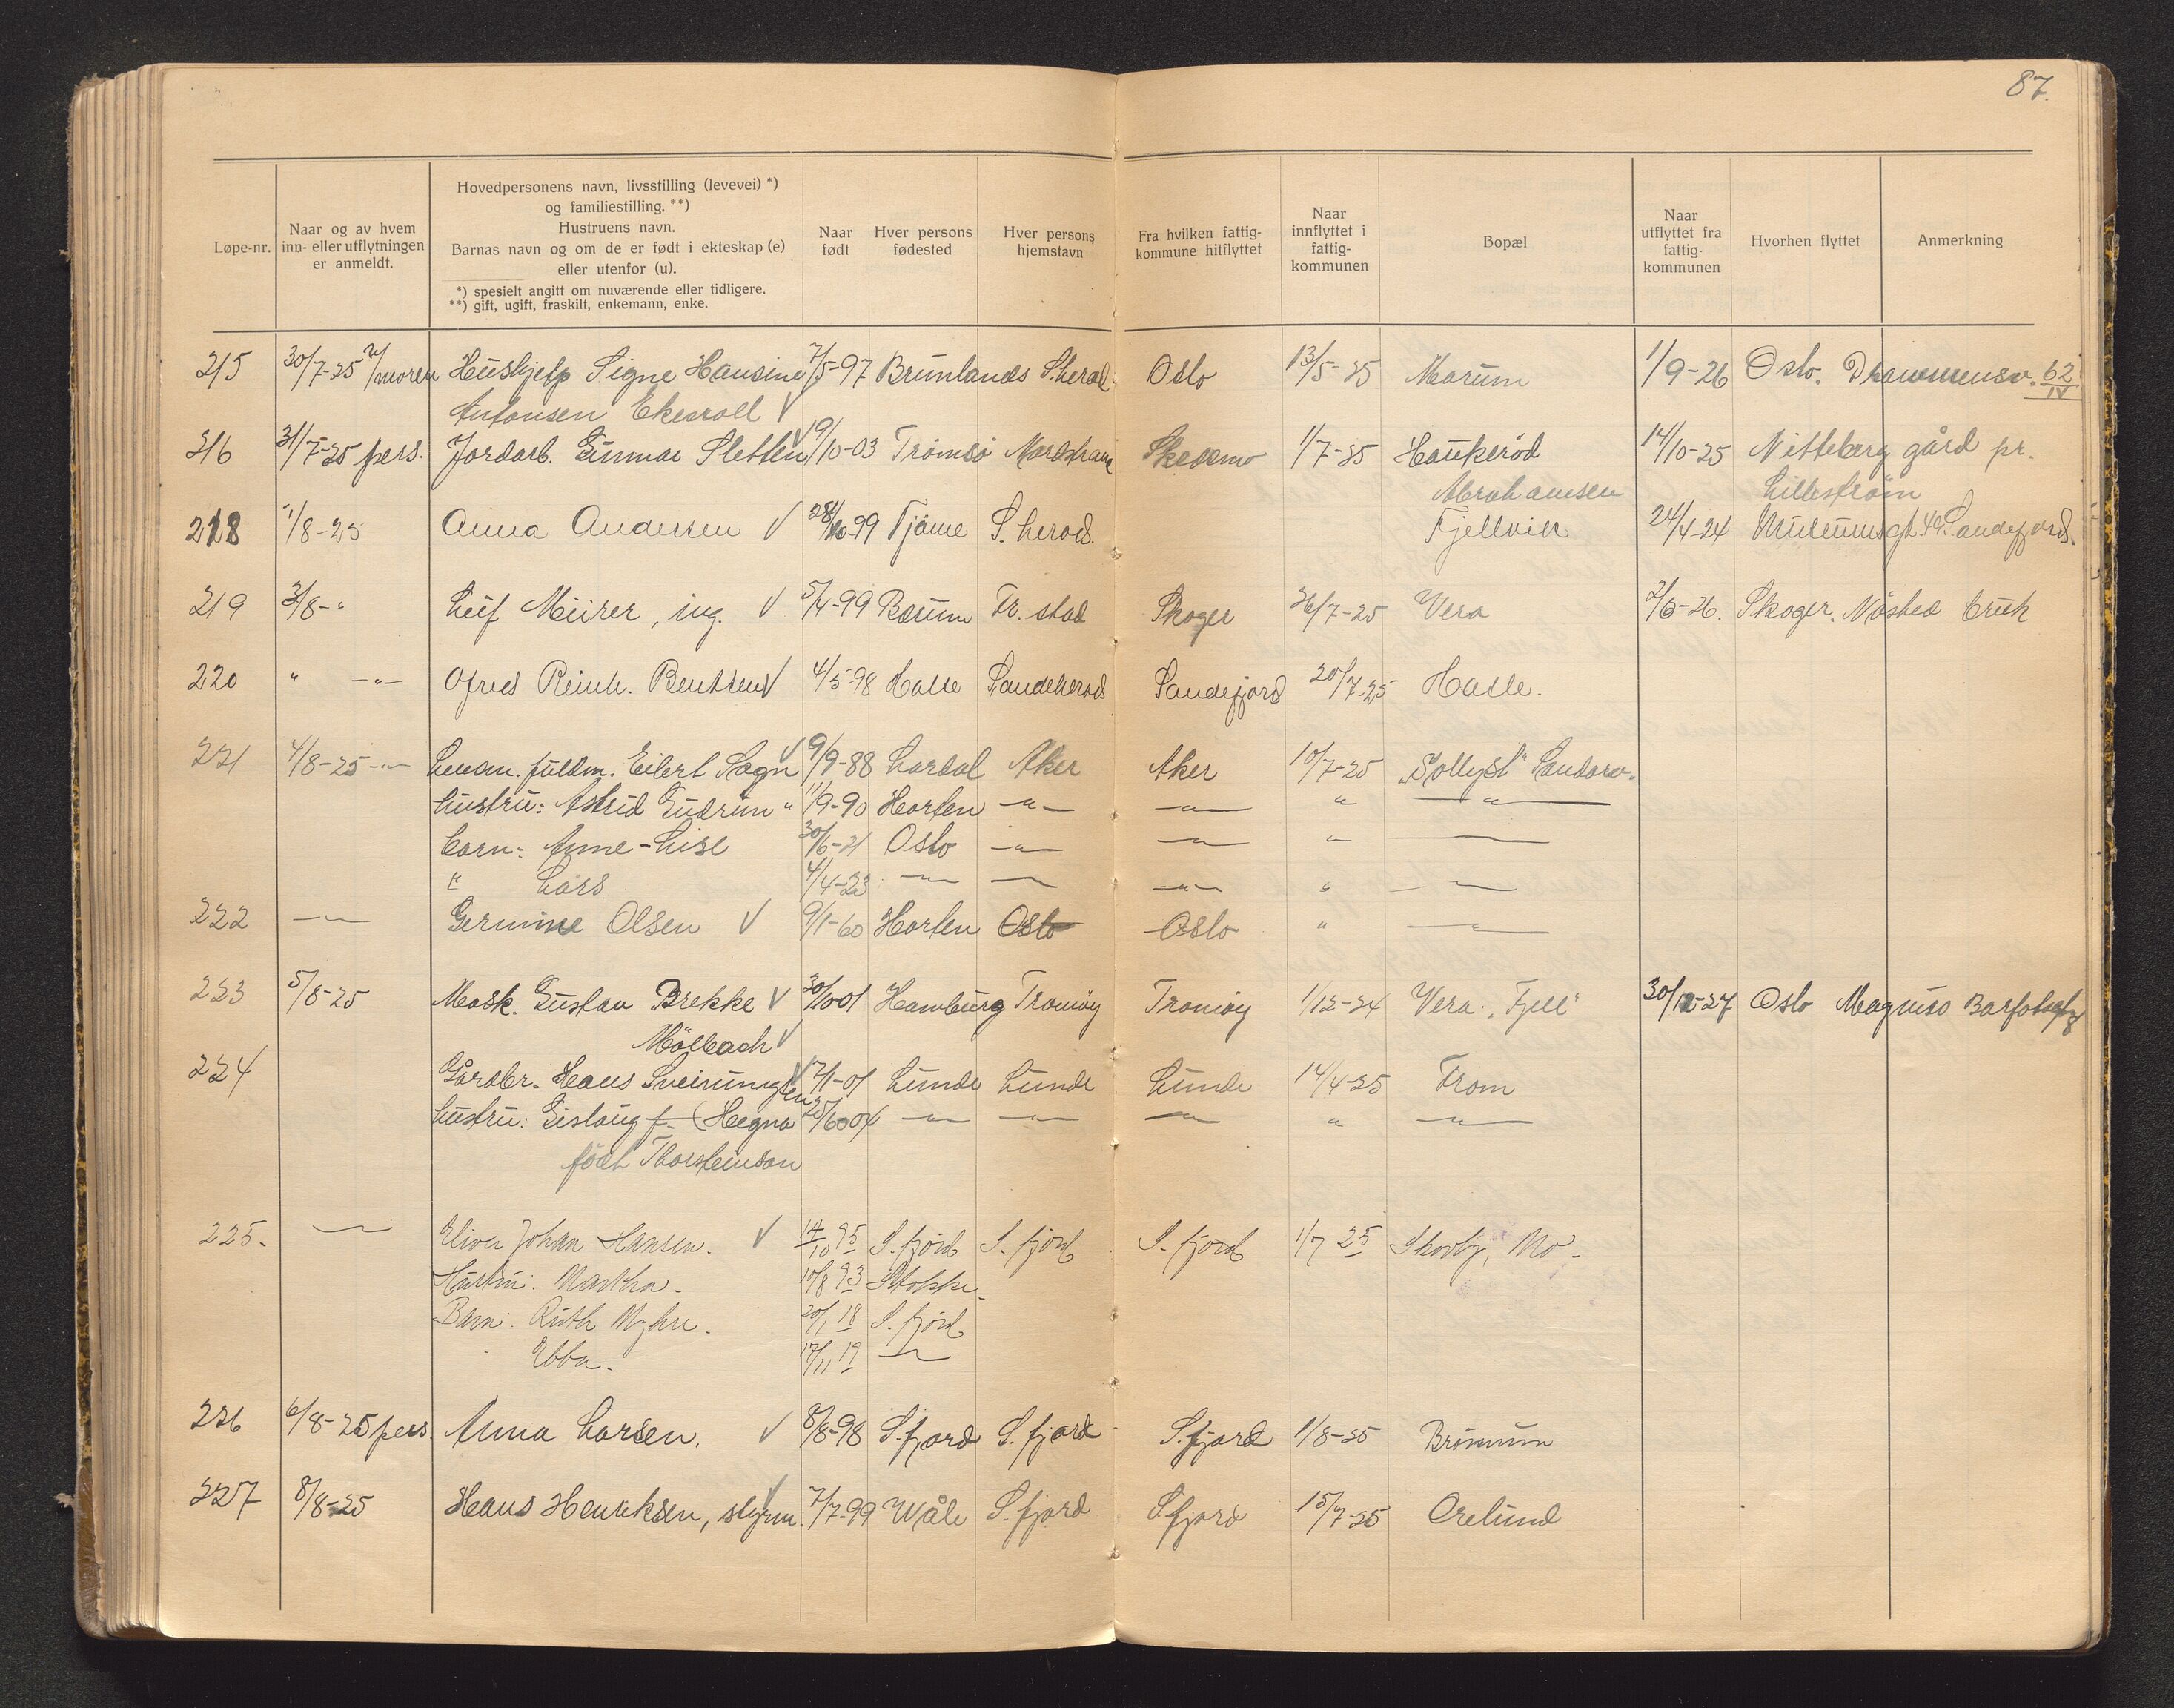 87.
Løpe-nr.
Naar og av hvem inn- eller utflytningen er anmeldt.
Hovedpersonens navn, livsstilling (levevei) *)
og familiestilling. **)
Hustruens navn.
Barnas navn og om de er født i ekteskap (e)
eller utenfor (u).
*) spesielt angitt om nuværende eller tidligere.
**) gift, ugift, fraskilt, enkemann, enke.
Naar født
Hver persons fødested
Hver persons hjemstavn
Fra hvilken fattig-kommune hitflyttet
Naar innflyttet i fattig-kommunen
Bopæl
Naar utflyttet fra fattig-kommunen
Hvorhen flyttet
Anmerkning
215 30/7-25 v/moren Hushjelp Signe Hansine 7/5-97 Brunlanes S.herad Oslo 13/5-25 Marum 1/9-26 Oslo. Drammensv. 62/IV
Antonsen Ekeroll V
216 31/7-25 pers. Jordarb. Gunnar Sletten V 19/10-03 Tromsö Nordstrand Skedsmo 1/7-25 Haukerød 14/10-25 Nitteberg gård pr.
Abrahamsen Lillestrøm
218 1/8-25 Anna Andersen V 28/10-99 Tjøme S. herad. Fjellvik 24/4-24 Museumsgt. 49. Sandefjord.
219 3/8-" Leif Meirer, ing. V 5/4-99 Bærum Fr. stad Skoger 26/7-25 Vera 2/6-26. Skoger. Nøsted bruk
220 " -"- Ofred Reinh. Bentsen V 4/5-98 Hasle Sandeherad Sandefjord 20/7-25 Hasle.
221 4/8-25 -"- Lensm. fuldm. Eilert Sogn V 9/9-88 Lardal Aker Aker 10/7-25 "Sollyst" Sandarv.
hustru: Astrid Gudrun " 11/9-90 Horten -"- -"- " -"-
barn: Anne-Lise 30/6-21 Oslo -"- -"- " -"-
" Lars 4/4-23 -"- -"- -"- " -"-
222 -"- Germine Olsen V 9/1-60 Horten Oslo Oslo " -"-
223 5/8-25 Mask. Gustav Brekke V 30/10-01 Hamburg Tromöy Tromöy 1/12-24 Vera. "Fjell" 30/12-27 Oslo Magnus Barfotsgt 8
Mölbach V
224 Gårdbr. Hans Sveinungsen V 17/1-01 Lunde Lunde Lunde 14/4-25 From
hustru: Gislaug f. (Hegna 25/6-04 -"- -"- -"- " -"-
födt Thorsteinson
225. -"- Oliver Johan Hansen. V 14/10 95 S. fjord S. fjord S. fjord 1/7 25 Skovly, Mo.
Hustru: Martha. 10/8 93 Stokke.
Barn: Ruth Myhre. 20/1 18 S. fjord
Ebba. 17/11 19 -"-
226 6/8-25 pers. Anna Larsen. V 8/8-98 S.fjord S. fjord S.fjord 1/8-25 Brönum
227 8/8-25 Hans Henriksen, styrm. V 7/7-99 Wåle S. fjord S.fjord 15/7-25 Orelund